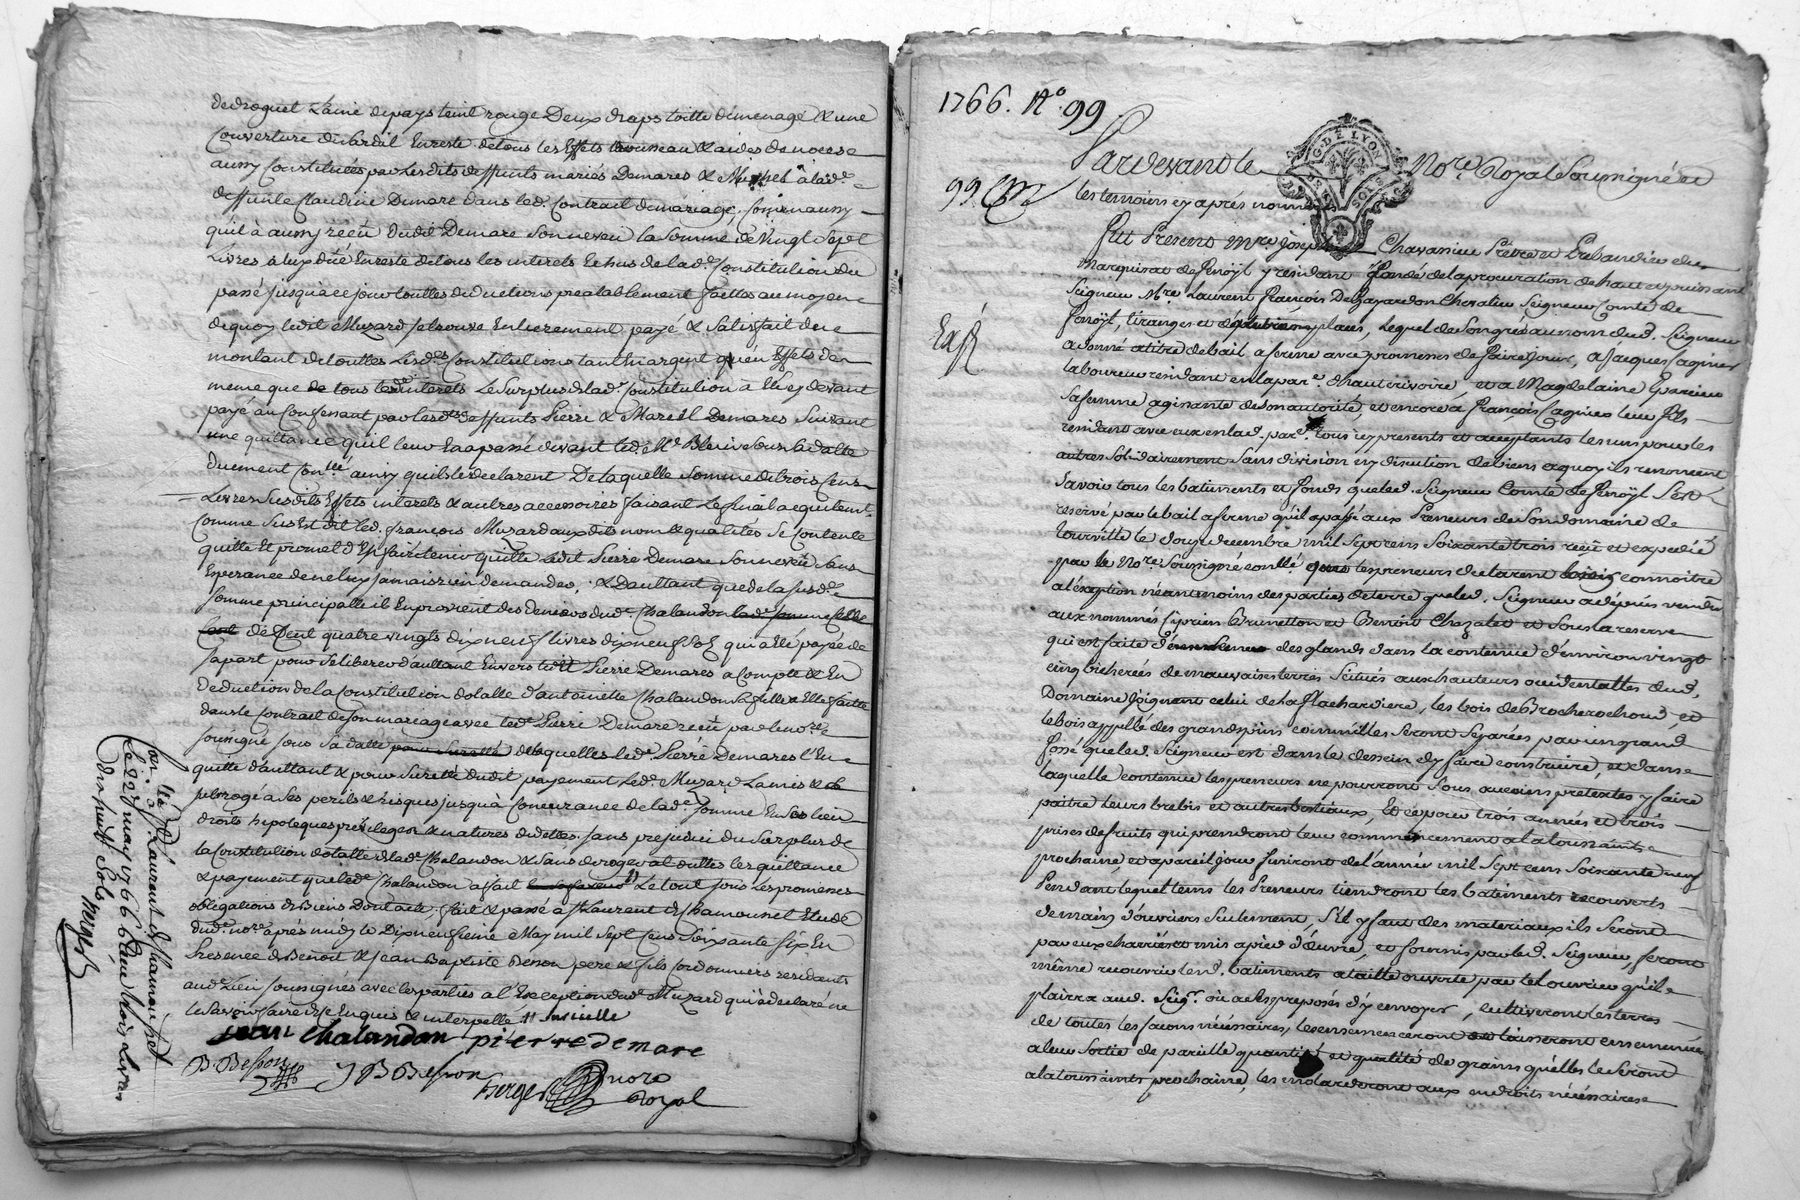 de droguet Laine de pays teint rouge Deux draps toille de menage & une
Couverture de Cardil En reste de tous les Effets trousseau & aides de noces
aussy Constituées par Lesdits deffunts mariés Demares & à lad.e
deffunte Claudine Demare dans led. Contrat de mariage, Comme aussy
qu'il à aussy réçû dudit Demare son neveu la somme de Vingt Sept
Livres à luy düe En reste de tous les interets Echus de lad.e Constitution du
passé jusqu'à ce jour touttes deductions prealablement faittes au moyen
de quoy ledit Muzard se trouve Entierement payé & Satisfait du
montant de touttes Lesd.es Constitutions tant En argent qu'en Effets de
meme que de tous led.t interets Le Surplus de lad.e Constitution à Eté cy devant
payé au Confessant par lesd. deffunts Pierre & Demares Suivant
une quittance qu'il leur En a passé devant led. M.e sous sa datte
duement Con.llé ainsy qu'ils le declarent De laquelle Somme de trois Cens
Livres Susdits Effets interets & autres accessoires faisant Le final acquitem.t
Comme Sus Est dit led. françois Muzard aux dits nom & qualités Se Contente
quitte Et promet d'En faire tenir quitte Ledit Pierre Demare Son neveu Sans
Esperance de ne luy jamais rien demander, & D'aultant que de la susd.e
Somme principalle il En provient des deniers dud. Chalandon lad.e somme
de Cent quatre vingts dix neuf livres dix neuf sols qu'il a Eté payée de
sa part pour se liberer d'aultant Envers ledit Pierre Demares a Compte & En
Deduction de la Constitution dotalle d'antoinette Chalandon sa fille a Elle faitte
dans le Contrat de son mariage avec led. Pierre Demare réçû par le no.re
sousigné sous Sa datte pour Sureté de laquelles led. Pierre Demares l'En
quitte d'aultant & pour Sureté dudit payement Led. Muzard L'a mis &
subrogé a Ses perils & risques jusqu'à Concurance de lad.e somme En Ses lieu
droits hipoteques privileges & natures de dettes, sans prejudice du Surplus de
la Constitution dotalle de lad. Chalandon & Sans deroger a la ditte quittance
& payement que led. Chalandon a fait Le tout sous Les promesses
obligations de Biens Dont acte, fait & passé à St Laurent de Chamousset Etude
dud. no.re après midy le Dix neufvieme May mil Sept Cens Soixante Six En
Presence de Benoit & Jean Baptiste Besson pere & fils Cordonniers residants
aud. Lieu sousignés avec les parties a l'Exception dud. Muzard qui à declaré ne
le Savoir faire de ce Enquis & interpellé
jean Chalandon pierre demare
B. Besson J B Besson
Berger nore
Royal
Con.llé à St Laurent de Chamousset
Le 28 may 1766 Reçu trois Livres
dix huit Sols
1766. No. 99
Pardevant le No.re Royal Soussigné et
G. DE LYON
99
les temoins cy après nommés
Fut Present M.re Joseph Chavanieu Prêtre et Prebandier du
Marquisat de fenoÿl y residant fondé de la procuration de haut et puissant
Seigneur M.re Laurent François De Gayardon Chevalier Seigneur Comte de
fenoÿl, tiranges et d'autres places, lequel de son gré au nom dud. Seigneur
a donné a titre de bail a ferme avec promesses de faire jouir, a Jacques Cagnier
laboureur residant en la par.e d'hauterivoire, et a Magdelaine
sa femme agissante de son autorité, et encore a François Cagnier leur fils
residant avec eux en lad. par.e tous icy presents et acceptants les uns pour les
autres Solidairement Sans division ny discution de biens a quoy ils renoncent
Savoir tous les batiments et fonds que led. Seigneur Comte de fenoÿl S'est
reservé par le bail a ferme qu'il a passé aux Preneurs de Son domaine de
tourville le douze decembre mil Sept cens Soixante trois reçu et expedié
par le No.re Soussigné con.llé que les preneurs declarent connoitre
a l'exeption néantmoins des parties de terre que led. Seigneur a depuis vendu
aux nommés Ciprien Brunetton et Benoit Chazalet et sous la reserve
qui est faite des glands dans la contenue d'environ vingt
cinq bicherées de mauvaises terres Scitués aux hauteurs occidentalles dud.
Domaine joignant celui de la Flachardiere, les bois de Brocherochoud, et
le bois appellé des grands pins comm'elles Seront Separées par un grand
fossé que led. Seigneur est dans le dessein d'y faire construire, et dans
laquelle contenue les preneurs ne pourront Sous aucuns pretextes y faire
paitre leurs brebis et autres bestiaux, Et ce pour trois années et trois
prises de fruits qui prendront leur commencement a la toussaints
prochaine, et a pareil jour finiront de l'année mil Sept cens Soixante neuf
Pendant lequel tems les Preneurs tiendront les batiments recouverts
de mains d'ouvriers Seulement, S'il y faut des materiaux ils Seront
par eux charriés et mis a pied d'œuvre, et fournis par led. Seigneur, feront
même recouvrir led. batiments a taille ouverte par tel ouvrier qu'il
plaira aud. Seig.r où a Ses preposés d'y envoyer, cultiveront les terres
de toutes les façons nécéssaires, les ensemenceront et laisseront ensemencées
a leur Sortie de pareille quantité et qualité de grains qu'elles le Seront
a la toussaints prochaine, les aux endroits nécéssaires